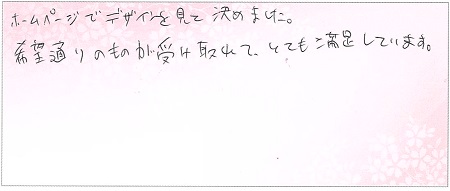 ホームページでデザインを見て決めました。
希望通りのものが受け取れて、とても満足しています。